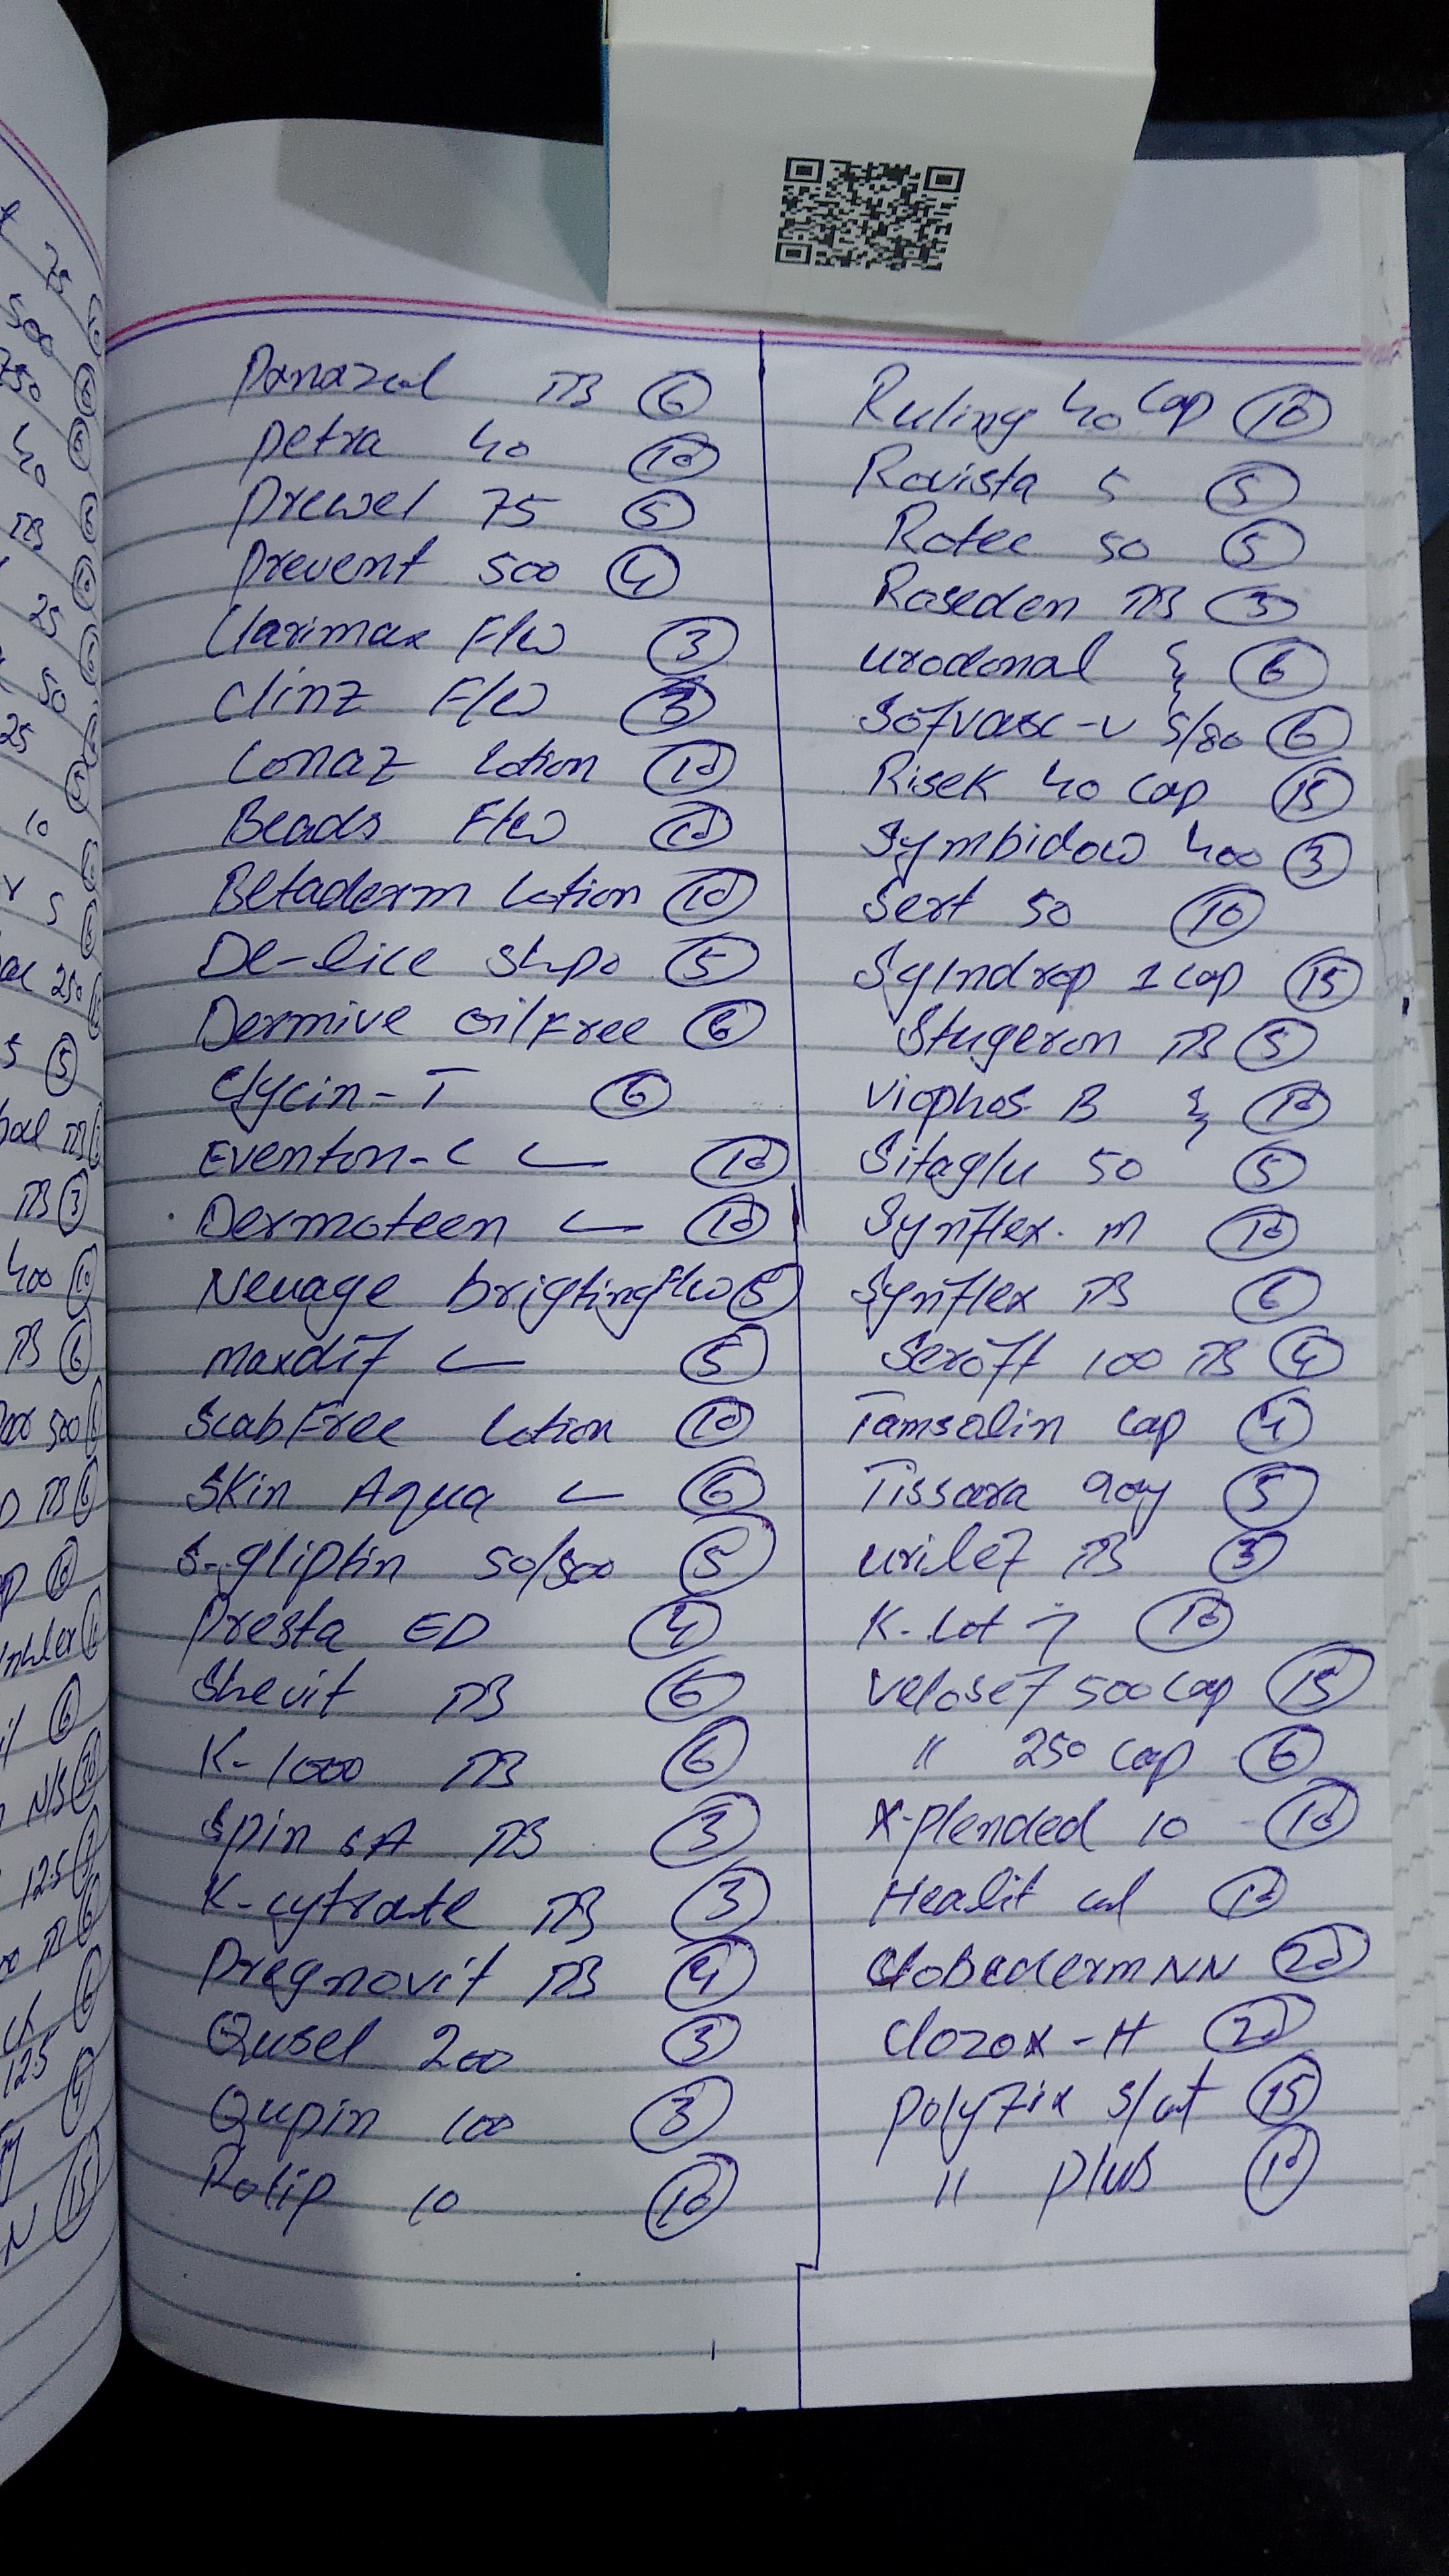 75
500
750 6
40 5
TB 5
25
50
25
10 5
5 6
250
5 5
TB
TB 3
400 10
TB 6
500
TB 6
10
6
N/S 30
125
TB 6
6
125 4
N 15
Panazol TB 6
Petra 40 10
Prewel 75 5
Prevent 500 4
Clarimax F/W 3
Clinz F/W 3
Conaz Lotion 10
Beads F/W 10
Betaderm Lotion 10
De-lice shpo 5
Dermive oil Free 6
Glycin-T 6
Eventon-C 10
Dermoteen 10
Neuage brigtingF/W 5
Maxdif 5
ScabFree Lotion 10
Skin Aqua 6
S-gliptin 50/500 5
Presta ED 4
Shevit TB 6
K-1000 TB 6
Spin SA TB 3
K-cytrate TB 3
Pregnovit TB 4
Qusel 200 3
Qupin 100 3
Rolip 10 10
Ruling 40 Cap 10
Rovista 5 5
Rotec 50 5
Roseden TB 3
Urodonal 6
Sofvasc-V 5/80 6
Risek 40 Cap 15
Symbidow 400 3
Sert 50 10
Syndrop 1 Cap 15
Stugeron TB 5
Viophos B 10
Sitaglu 50 5
Synflex. M 10
Synflex TB 6
Seroft 100 TB 4
Tamsolin Cap 4
Tissara 90y 5
Urilef TB 3
K-Lot 10
Velosef 500 Cap 15
" 250 Cap 6
X-plended 10 10
Healit 10
Clobederm NN 20
Clozox-H 20
Polyfix 15
" Plus 10